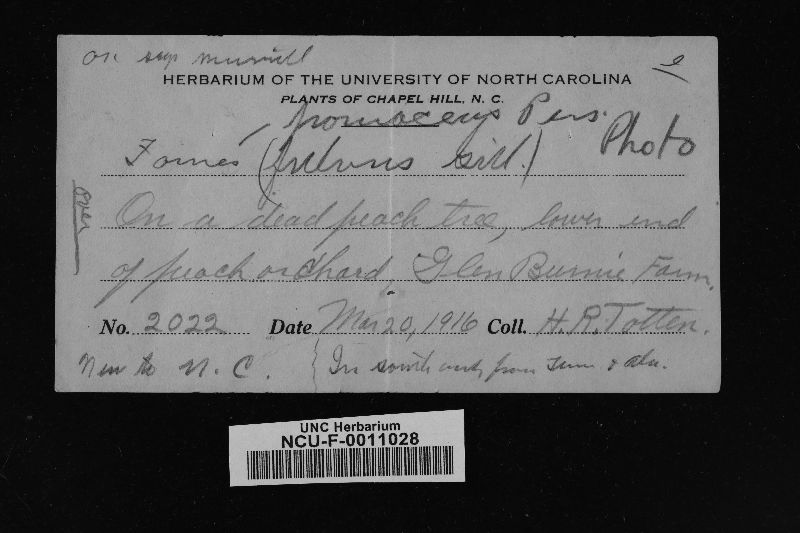 OK says Murrill
e
HERBARIUM OF THE UNIVERSITY OF NORTH CAROLINA
PLANTS OF CHAPEL HILL, N. C.
pomaceus Pers.
Photo
Fomes (fulvus Gill.)
over
On a dead peach tree, lower end
of peach orchard, Glen Burnie Farm.
No. 2022 Date Mar 20, 1916 Coll. H. R. Totten.
New to N. C. { In south only from Tenn. & Ala.
UNC Herbarium
NCU-F-0011028